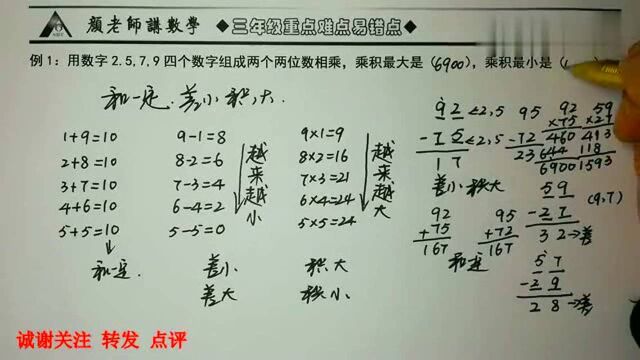 顏老師講數學 ◆三年级重点难点易错点◆
例1：用数字2.5,7,9四个数字组成两个两位数相乘，乘积最大是（6900），乘积最小是（
和一定.差小积大.
1+9=10
2+8=10
3+7=10
4+6=10
5+5=10
和一定.
9-1=8
8-2=6
7-3=4
6-4=2
5-5=0
越来越小
差小
差大
9×1=9
8×2=16
7×3=21
6×4=24
5×5=24
越来越大
积大
积小
92
<2,5
-75
<2,5
17
95
-72
23
92
×75
460
644
6900
59
×27
413
118
1593
差小积大
92
+75
167
95
+72
167
和定
59
-27
32→差
(9,7)
57
-29
28→差
诚谢关注 转发 点评